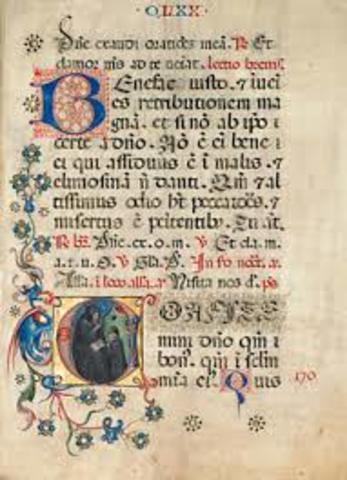 · CLXX ·
Dñe exaudi orationẽ meã. R Et
clamor ad te ueniat. lectio breuis
Benefac iusto. ⁊ iueni
es retributionem ma
gnã. et si nõ ab ip̃o i
certe a dño. Nõ ẽ ei bene i
ei qui assiduus ẽ i malis. ⁊
elimosinã ñ danti. Qm̃ ⁊ al
tissimus odio ht ⁊
misertus ẽ penitentibꝰ. Tu aut.
Dñe. ex. o. m. V Et cla. m.
a. t. u. V Gla. P. noct. a.
Alla. i loco alla. a. Visita nos d. ps
CONFITE
mini dño qm̃ i
bonꝰ. qm̃ i
mia eiꝰ. Quis
170